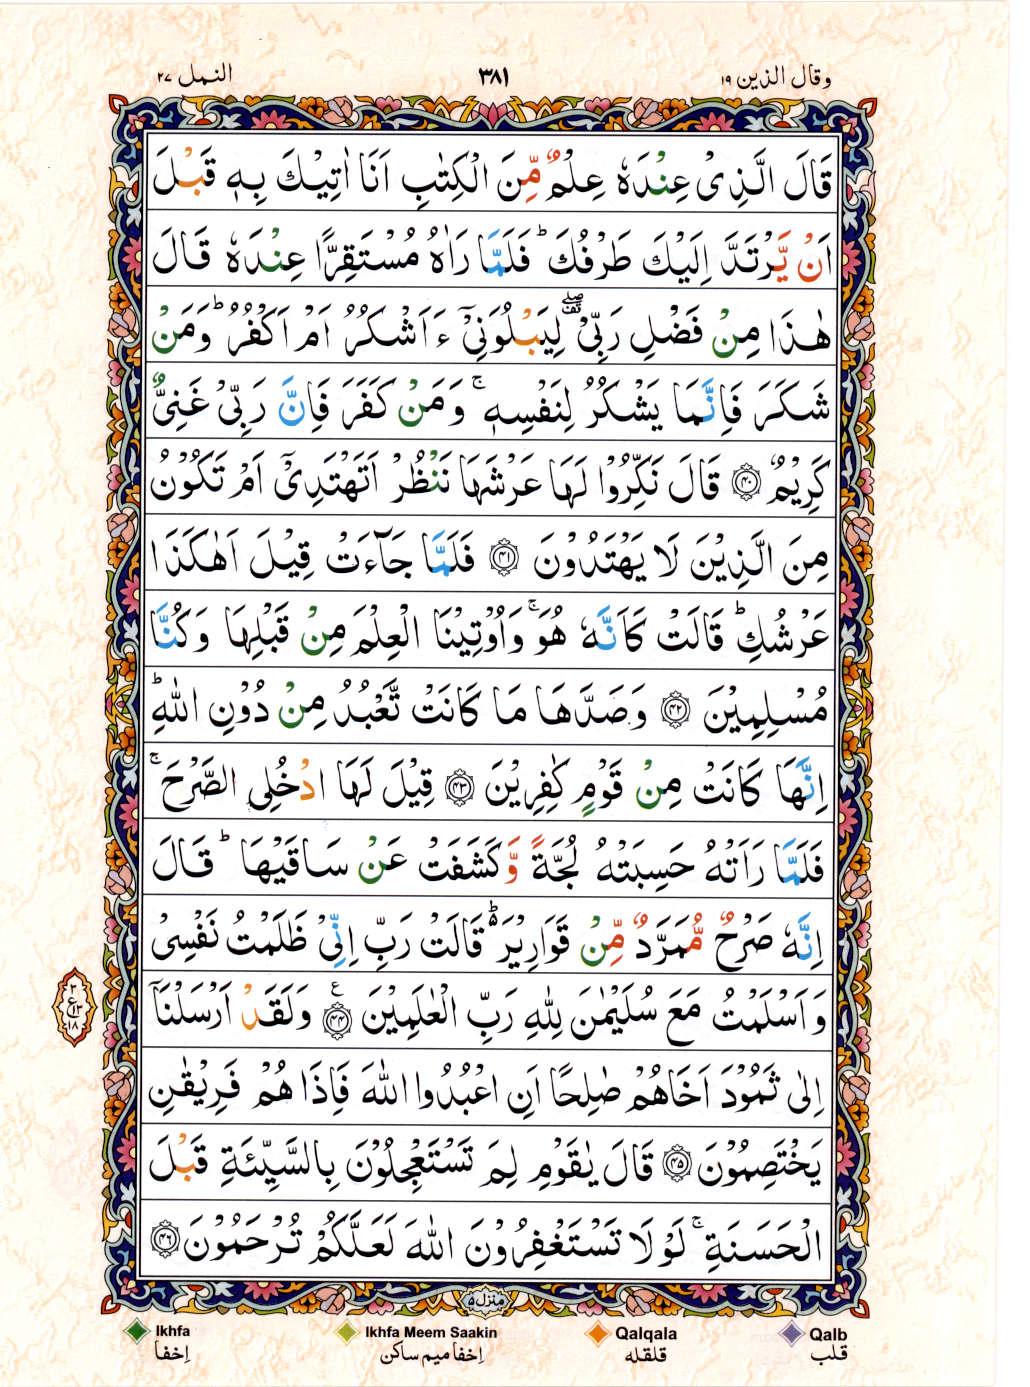 وقال الذين ١٩ ٣٨١ النمل ٢٧
قَالَ الَّذِىْ عِنْدَهٗ عِلْمٌ مِّنَ الْكِتٰبِ اَنَا اٰتِيْكَ بِهٖ قَبْلَ
اَنْ يَّرْتَدَّ اِلَيْكَ طَرْفُكَ ؕ فَلَمَّا رَاٰهُ مُسْتَقِرًّا عِنْدَهٗ قَالَ
هٰذَا مِنْ فَضْلِ رَبِّىْ ۖ لِيَبْلُوَنِىْٓ ءَاَشْكُرُ اَمْ اَكْفُرُ ؕ وَمَنْ
شَكَرَ فَاِنَّمَا يَشْكُرُ لِنَفْسِهٖ ۚ وَمَنْ كَفَرَ فَاِنَّ رَبِّىْ غَنِىٌّ
كَرِيْمٌ ۝٤٠ قَالَ نَكِّرُوْا لَهَا عَرْشَهَا نَنْظُرْ اَتَهْتَدِىْٓ اَمْ تَكُوْنُ
مِنَ الَّذِيْنَ لَا يَهْتَدُوْنَ ۝٤١ فَلَمَّا جَآءَتْ قِيْلَ اَهٰكَذَا
عَرْشُكِ ؕ قَالَتْ كَاَنَّهٗ هُوَ ۚ وَاُوْتِيْنَا الْعِلْمَ مِنْ قَبْلِهَا وَكُنَّا
مُسْلِمِيْنَ ۝٤٢ وَصَدَّهَا مَا كَانَتْ تَّعْبُدُ مِنْ دُوْنِ اللّٰهِ ؕ
اِنَّهَا كَانَتْ مِنْ قَوْمٍ كٰفِرِيْنَ ۝٤٣ قِيْلَ لَهَا ادْخُلِى الصَّرْحَ ۚ
فَلَمَّا رَاَتْهُ حَسِبَتْهُ لُجَّةً وَّكَشَفَتْ عَنْ سَاقَيْهَا ؕ قَالَ
اِنَّهٗ صَرْحٌ مُّمَرَّدٌ مِّنْ قَوَارِيْرَ ؕ قَالَتْ رَبِّ اِنِّىْ ظَلَمْتُ نَفْسِىْ
وَاَسْلَمْتُ مَعَ سُلَيْمٰنَ لِلّٰهِ رَبِّ الْعٰلَمِيْنَ ۝٤٤ ع وَلَقَدْ اَرْسَلْنَآ
٣ ع ١٣ ١٨
اِلٰى ثَمُوْدَ اَخَاهُمْ صٰلِحًا اَنِ اعْبُدُوا اللّٰهَ فَاِذَا هُمْ فَرِيْقٰنِ
يَخْتَصِمُوْنَ ۝٤٥ قَالَ يٰقَوْمِ لِمَ تَسْتَعْجِلُوْنَ بِالسَّيِّئَةِ قَبْلَ
الْحَسَنَةِ ۚ لَوْلَا تَسْتَغْفِرُوْنَ اللّٰهَ لَعَلَّكُمْ تُرْحَمُوْنَ ۝٤٦
منزل ٥
Ikhfa Ikhfa Meem Saakin Qalqala Qalb
اِخفا اِخفا ميم ساكن قلقله قلب